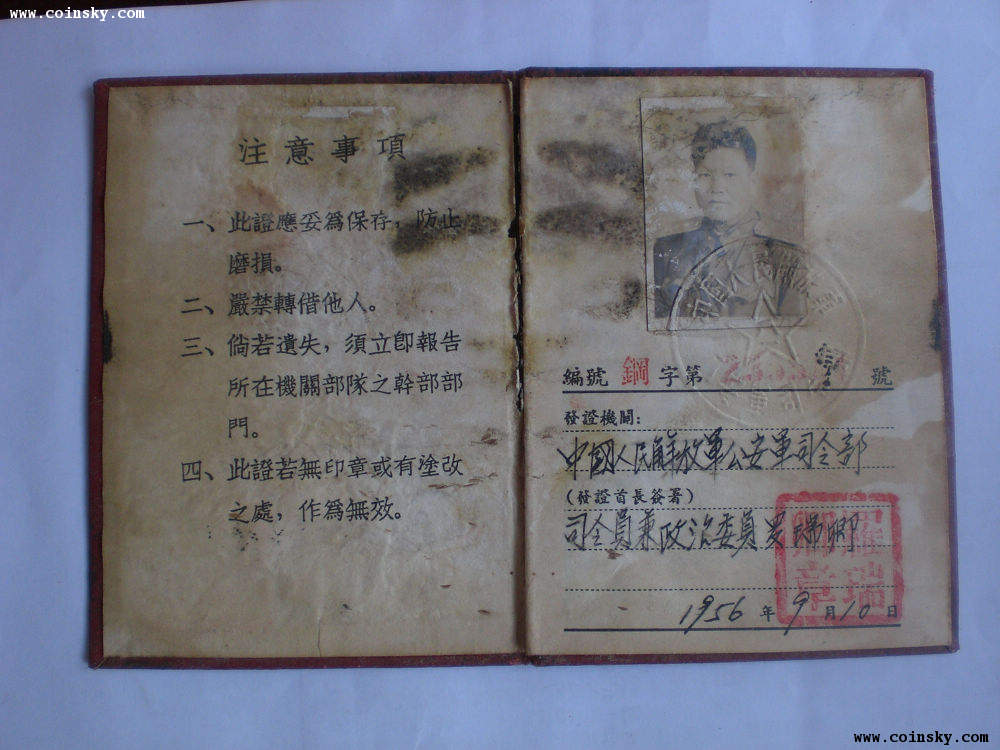 www.coinsky.com
www.coinsky.com
注意事項
一、此證應妥爲保存，防止
磨損。
二、嚴禁轉借他人。
三、倘若遺失，須立卽報告
所在機關部隊之幹部部
門。
四、此證若無印章或有塗改
之處，作爲無效。
編號 鋼 字第 號
發證機關：
中國人民解放軍公安軍司令部
（發證首長簽署）
司令員兼政治委員罗瑞卿
羅瑞卿章
1956 年 9 月 10 日
www.coinsky.com